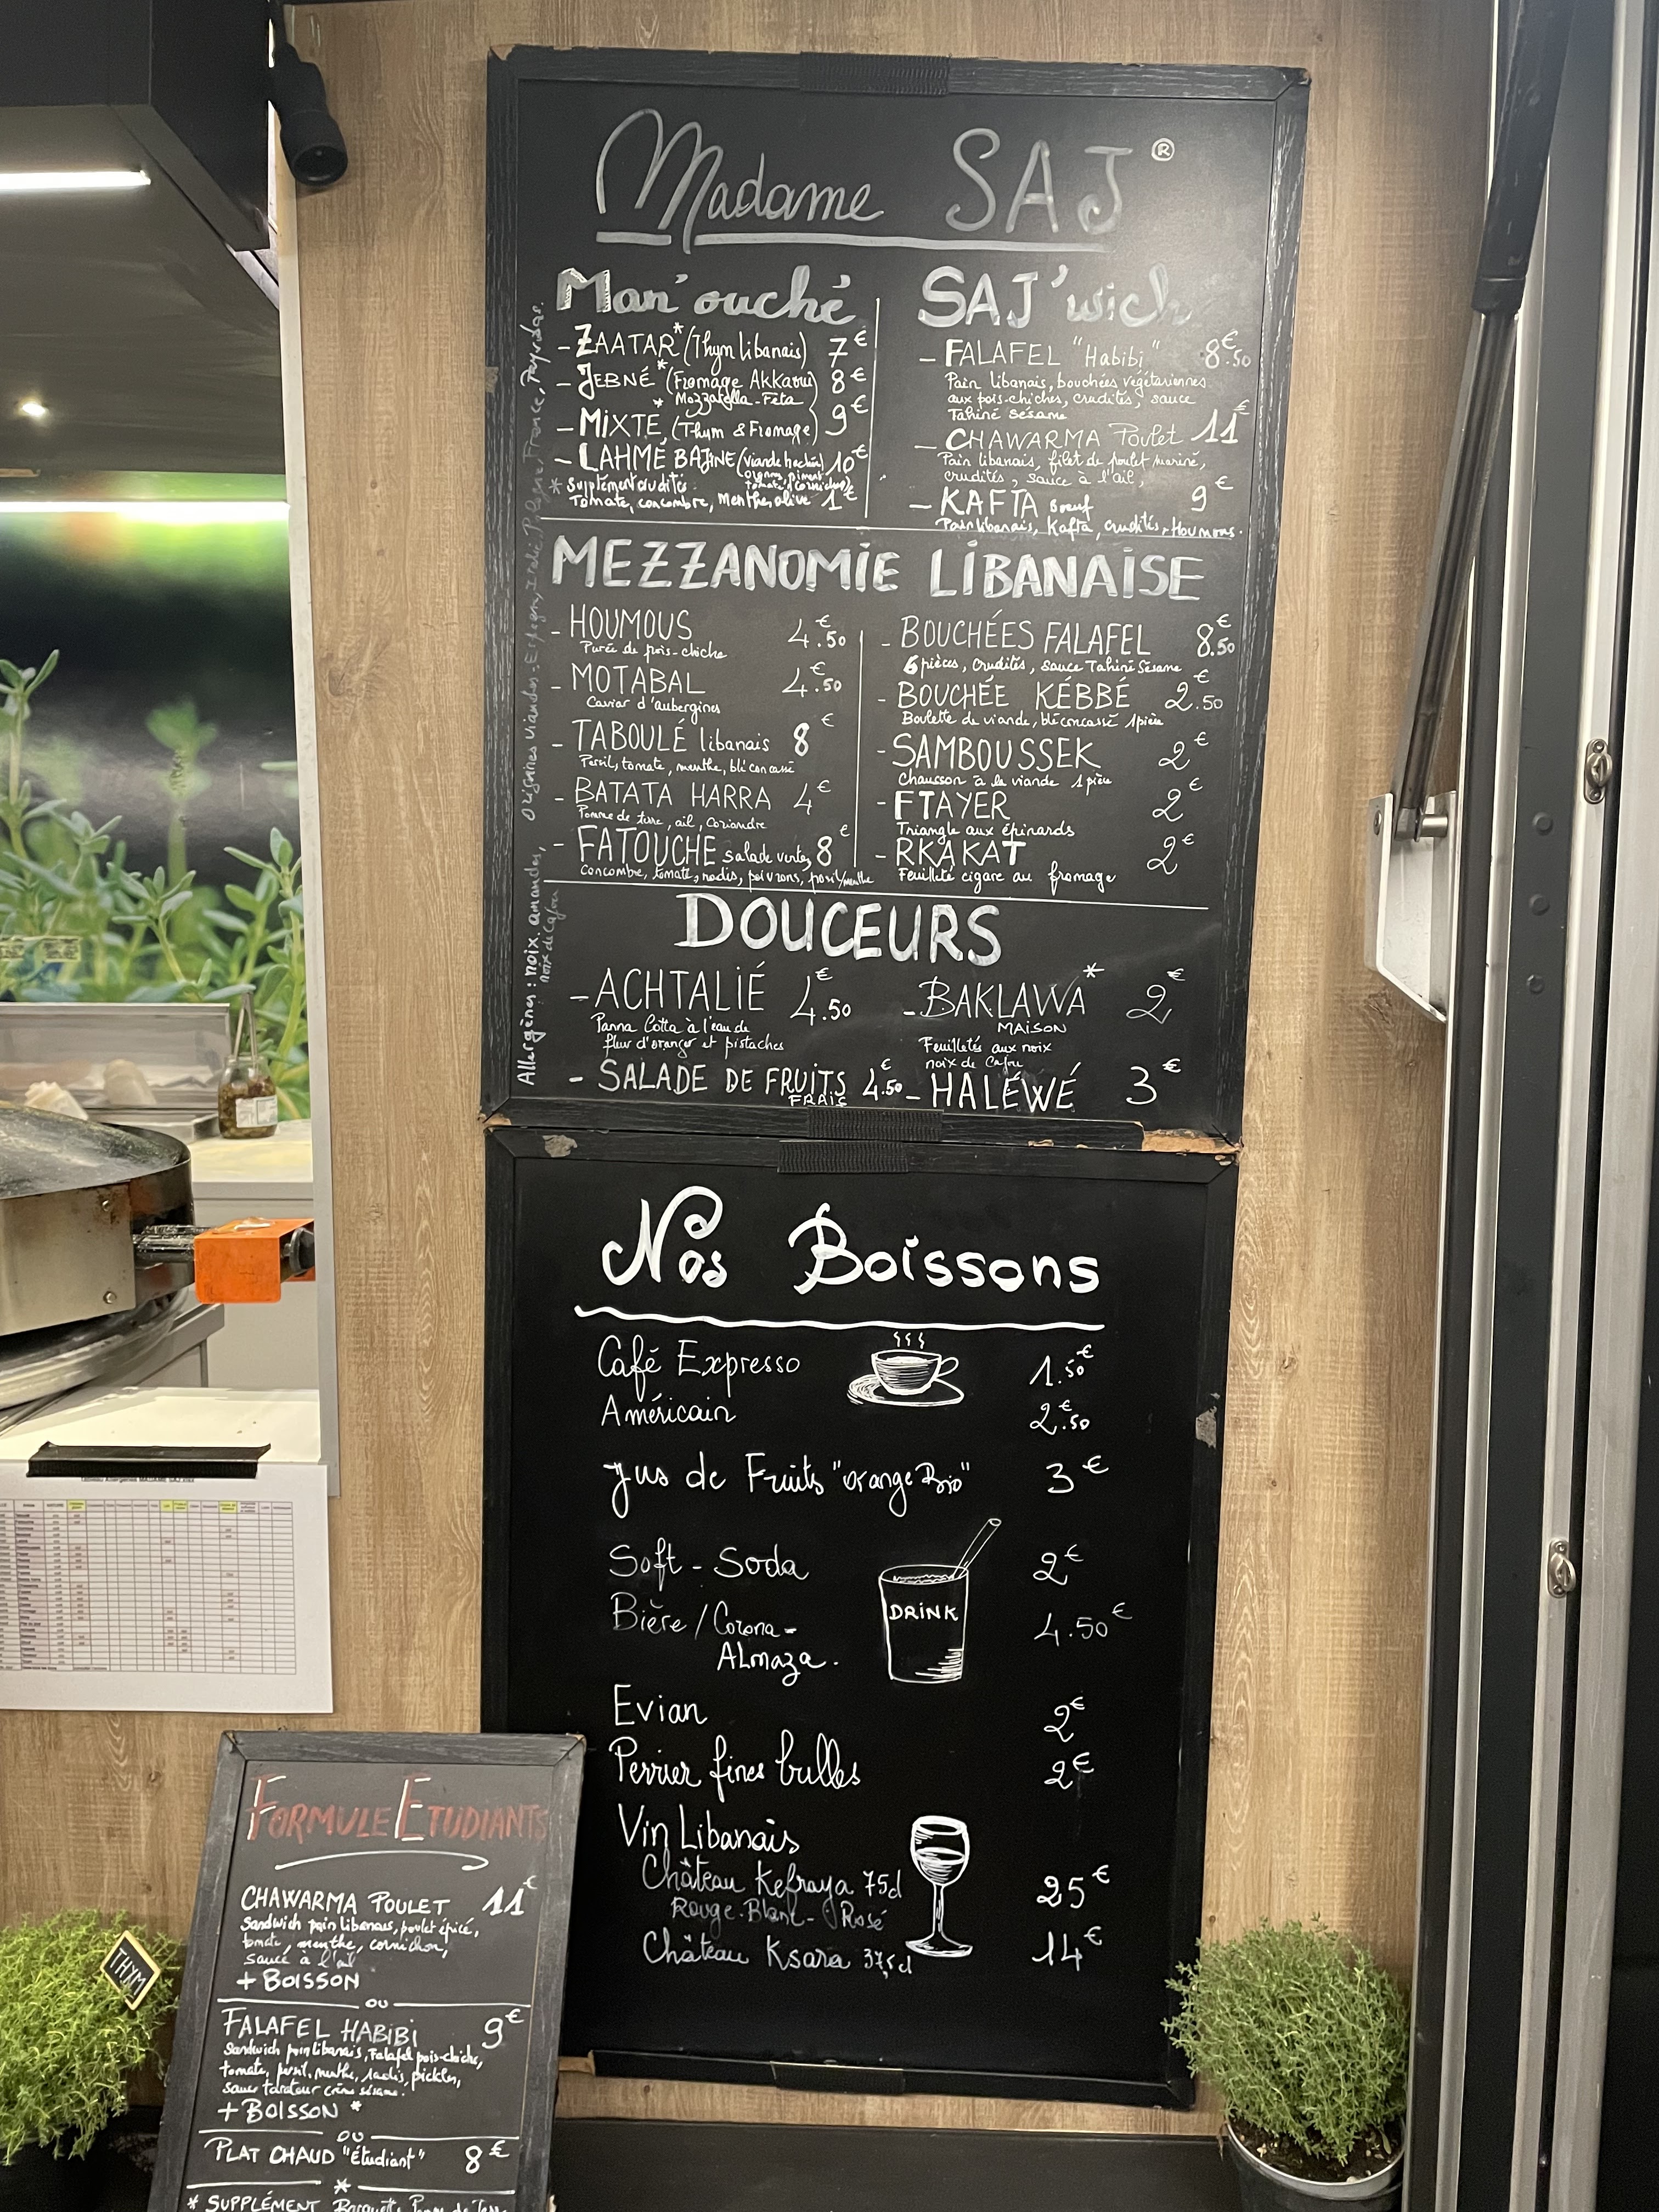 Madame SAJ ®
Man'ouché
- ZAATAR* (Thym libanais) 7€
- JEBNÉ* (Fromage Akkaoui 8€
Mozzarella - Feta
- MIXTE* (Thym & Fromage) 9€
- LAHMÉ BAJINE (viande hachée) 10€
oignons, piment
* Supplément crudités
Tomate, concombre, Menthe, olive 1€
SAJ'wich
- FALAFEL "Habibi" 8€.50
Pain libanais, bouchées végétariennes
aux pois-chiches, crudités, sauce
Tahiné sésame
- CHAWARMA Poulet 11€
Pain libanais, filet de poulet mariné,
crudités, sauce à l'ail,
- KAFTA Boeuf 9€
Pain libanais, Kafta, crudités, Houmous.
MEZZANOMIE LIBANAISE
- HOUMOUS 4€.50
Purée de pois-chiche
- MOTABAL 4€.50
Caviar d'aubergines
- TABOULÉ libanais 8€
Persil, tomate, menthe, blé concassé
- BATATA HARRA 4€
Pomme de terre, ail, Coriandre
- FATOUCHE salade verte, 8€
Concombre, tomate, radis, poivrons, persil/menthe
- BOUCHÉES FALAFEL 8€.50
6 pièces, crudités, sauce Tahiné Sésame
- BOUCHÉE KÉBBÉ 2€.50
Boulette de viande, blé concassé 1 pièce
- SAMBOUSSEK 2€
Chausson à la viande 1 pièce
- FTAYER 2€
Triangle aux épinards
- RKAKAT 2€
Feuilleté cigare au fromage
DOUCEURS
- ACHTALIÉ 4€.50
Panna Cotta à l'eau de
fleur d'oranger et pistaches
- SALADE DE FRUITS 4€.50
FRAIS
- BAKLAWA* 2€
MAISON
Feuilletés aux noix
noix de Cajou
- HALÉWÉ 3€
Allergènes : noix, amandes,
noix de Cajou
Origines viandes : Espagne, Italie, Pologne, France, Pays bas.
Nos Boissons
Café Expresso 1.50€
Américain 2€.50
Jus de Fruits "orange Bio" 3€
Soft - Soda 2€
DRINK
Bière / Corona - 4.50€
ALmaza.
Evian 2€
Perrier fines bulles 2€
Vin Libanais
Château Kefraya 75cl 25€
Rouge - Blanc - Rosé
Château Ksara 37,5cl 14€
FORMULE ETUDIANTS
CHAWARMA POULET 11€
Sandwich pain libanais, poulet épicé,
tomate, menthe, cornichon,
sauce à l'ail
+ BOISSON
OU
FALAFEL HABIBI 9€
Sandwich pain libanais, Falafel pois-chiche,
tomate, persil, menthe, radis, pickles,
sauce taratour crème sésame.
+ BOISSON *
OU
PLAT CHAUD "Étudiant" 8€
*
* SUPPLÉMENT
THYM